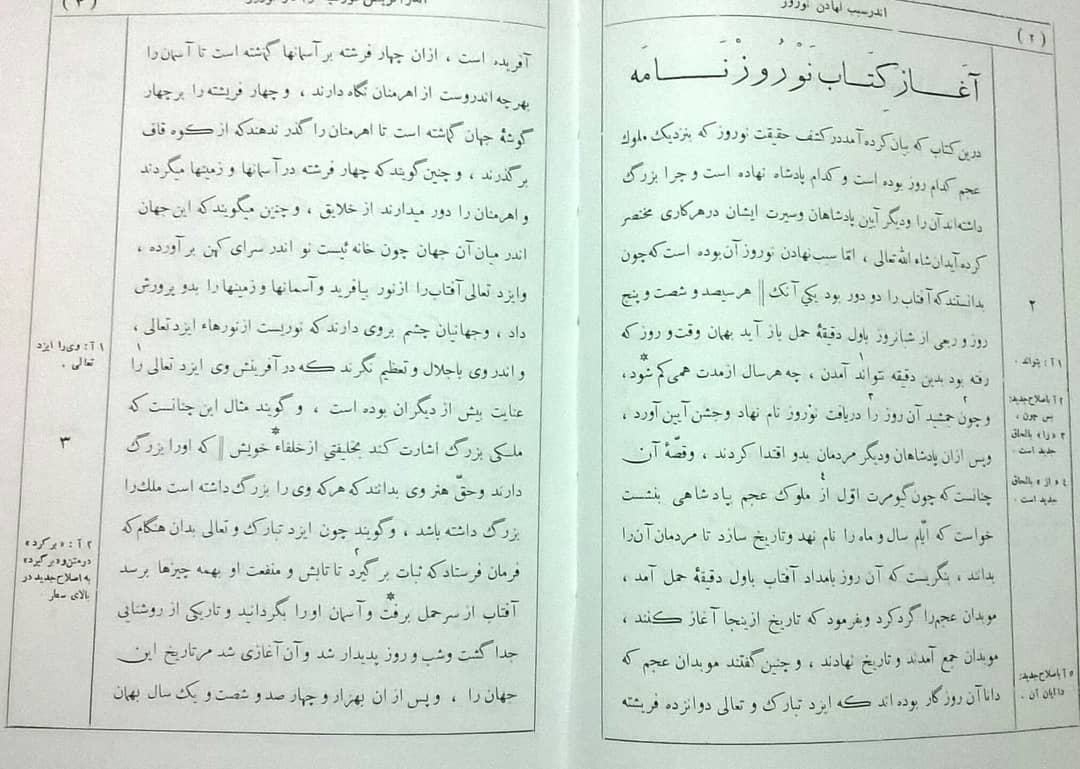 اندر سبب نهادن نوروز
( ۲ )
آغاز کِتاب نَوْروزْنَامَه
درین کتاب که بیان کرده آمد در کشف حقیقت نوروز که بنزدیک ملوك
عجم کدام روز بوده است و کدام پادشاه نهاده است و چرا بزرگ
داشته‌اند آن را و دیگر آیین پادشاهان و سیرت ایشان در هر کاری مختصر
کرده آید ان شاء الله تعالی ، امّا سبب نهادن نوروز آن بوده است که چون
بدانستند که آفتاب را دو دور بود یکی آنك || هر سیصد و شصت و پنج
روز و ربعی از شبانروز باول دقیقهٔ حمل باز آید بهمان وقت و روز که
رفته بود بدین دقیقه نتواند۱ آمدن ، چه هر سال از مدت همی کم شود*،
و چون۲ جمشید آن روز را۳ دریافت نوروز نام نهاد و جشن آیین آورد ،
و پس از ان پادشاهان و دیگر مردمان بدو اقتدا کردند ، و قصّهٔ آن
چنانست که چون گیومرت اوّل از۴ ملوك عجم بپادشاهی بنشست
خواست که ایّام سال و ماه را نام نهد و تاریخ سازد تا مردمان آن را
بدانند ، بنگریست که آن روز بامداد آفتاب باول دقیقهٔ حمل آمد ،
موبدان عجم را گرد کرد و بفرمود که تاریخ ازینجا آغاز کنند ،
موبدان جمع آمدند و تاریخ نهادند ، و چنین گفتند موبدان عجم که
دانا آن روزگار بوده اند که ایزد تبارك و تعالی دوانزده فریشته
۲
۱ آ : بتواند .
۲ آ باصلاح جدید:
پس چون ،
۳ «را» بالحاق
جدید است .
٤ « از » بالحاق
جدید است .
۵ آ باصلاح جدید:
دانایان آن .
( ۳ )
آفریده است ، ازان چهار فرشته بر آسمانها گماشته است تا آسمان را
بهرچه اندروست از اهرمنان نگاه دارند ، و چهار فریشته را بر چهار
گوشهٔ جهان گماشته است تا اهرمنان را گذر ندهند که از کوه قاف
بر گذرند ، و چنین گویند که چهار فرشته در آسمانها و زمینها میگردند
و اهرمنان را دور میدارند از خلایق ، و چنین میگویند که این جهان
اندر میان آن جهان چون خانه ئیست نو اندر سرای کهن بر آورده ،
و ایزد تعالی آفتاب را از نور بیافرید و آسمانها و زمینها را بدو پرورش
داد ، و جهانیان چشم بروی دارند که نوریست از نورهاء ایزد تعالی ،
و اندر وی باجلال و تعظیم نگرند که در آفرینش وی ایزد تعالی را۱
عنایت بیش از دیگران بوده است ، و گویند مثال این چنانست که
ملکی بزرگ اشارت کند بخلیفتی از خلفاء خویش* || که او را بزرگ
دارند و حقّ هنر وی بدانند که هر که وی را بزرگ داشته است ملك را
بزرگ داشته باشد ، و گویند چون ایزد تبارك و تعالی بدان هنگام که
فرمان فرستاد که ثبات بر گیرد۲ تا تابش و منفعت او بهمه چیزها برسد
آفتاب از سر حمل برفت* و آسمان او را بگردانید و تاریکی از روشنایی
جدا گشت و شب و روز پدیدار شد و آن آغازی شد مر تاریخ این
جهان را ، و پس از ان بهزار و چهار صد و شصت و یك سال بهمان
۱ آ : وی را ایزد
تعالی .
۳
۲ آ : « بر کرد »
در متن و «بر گیرد»
به اصلاح جدید در
بالای سطر